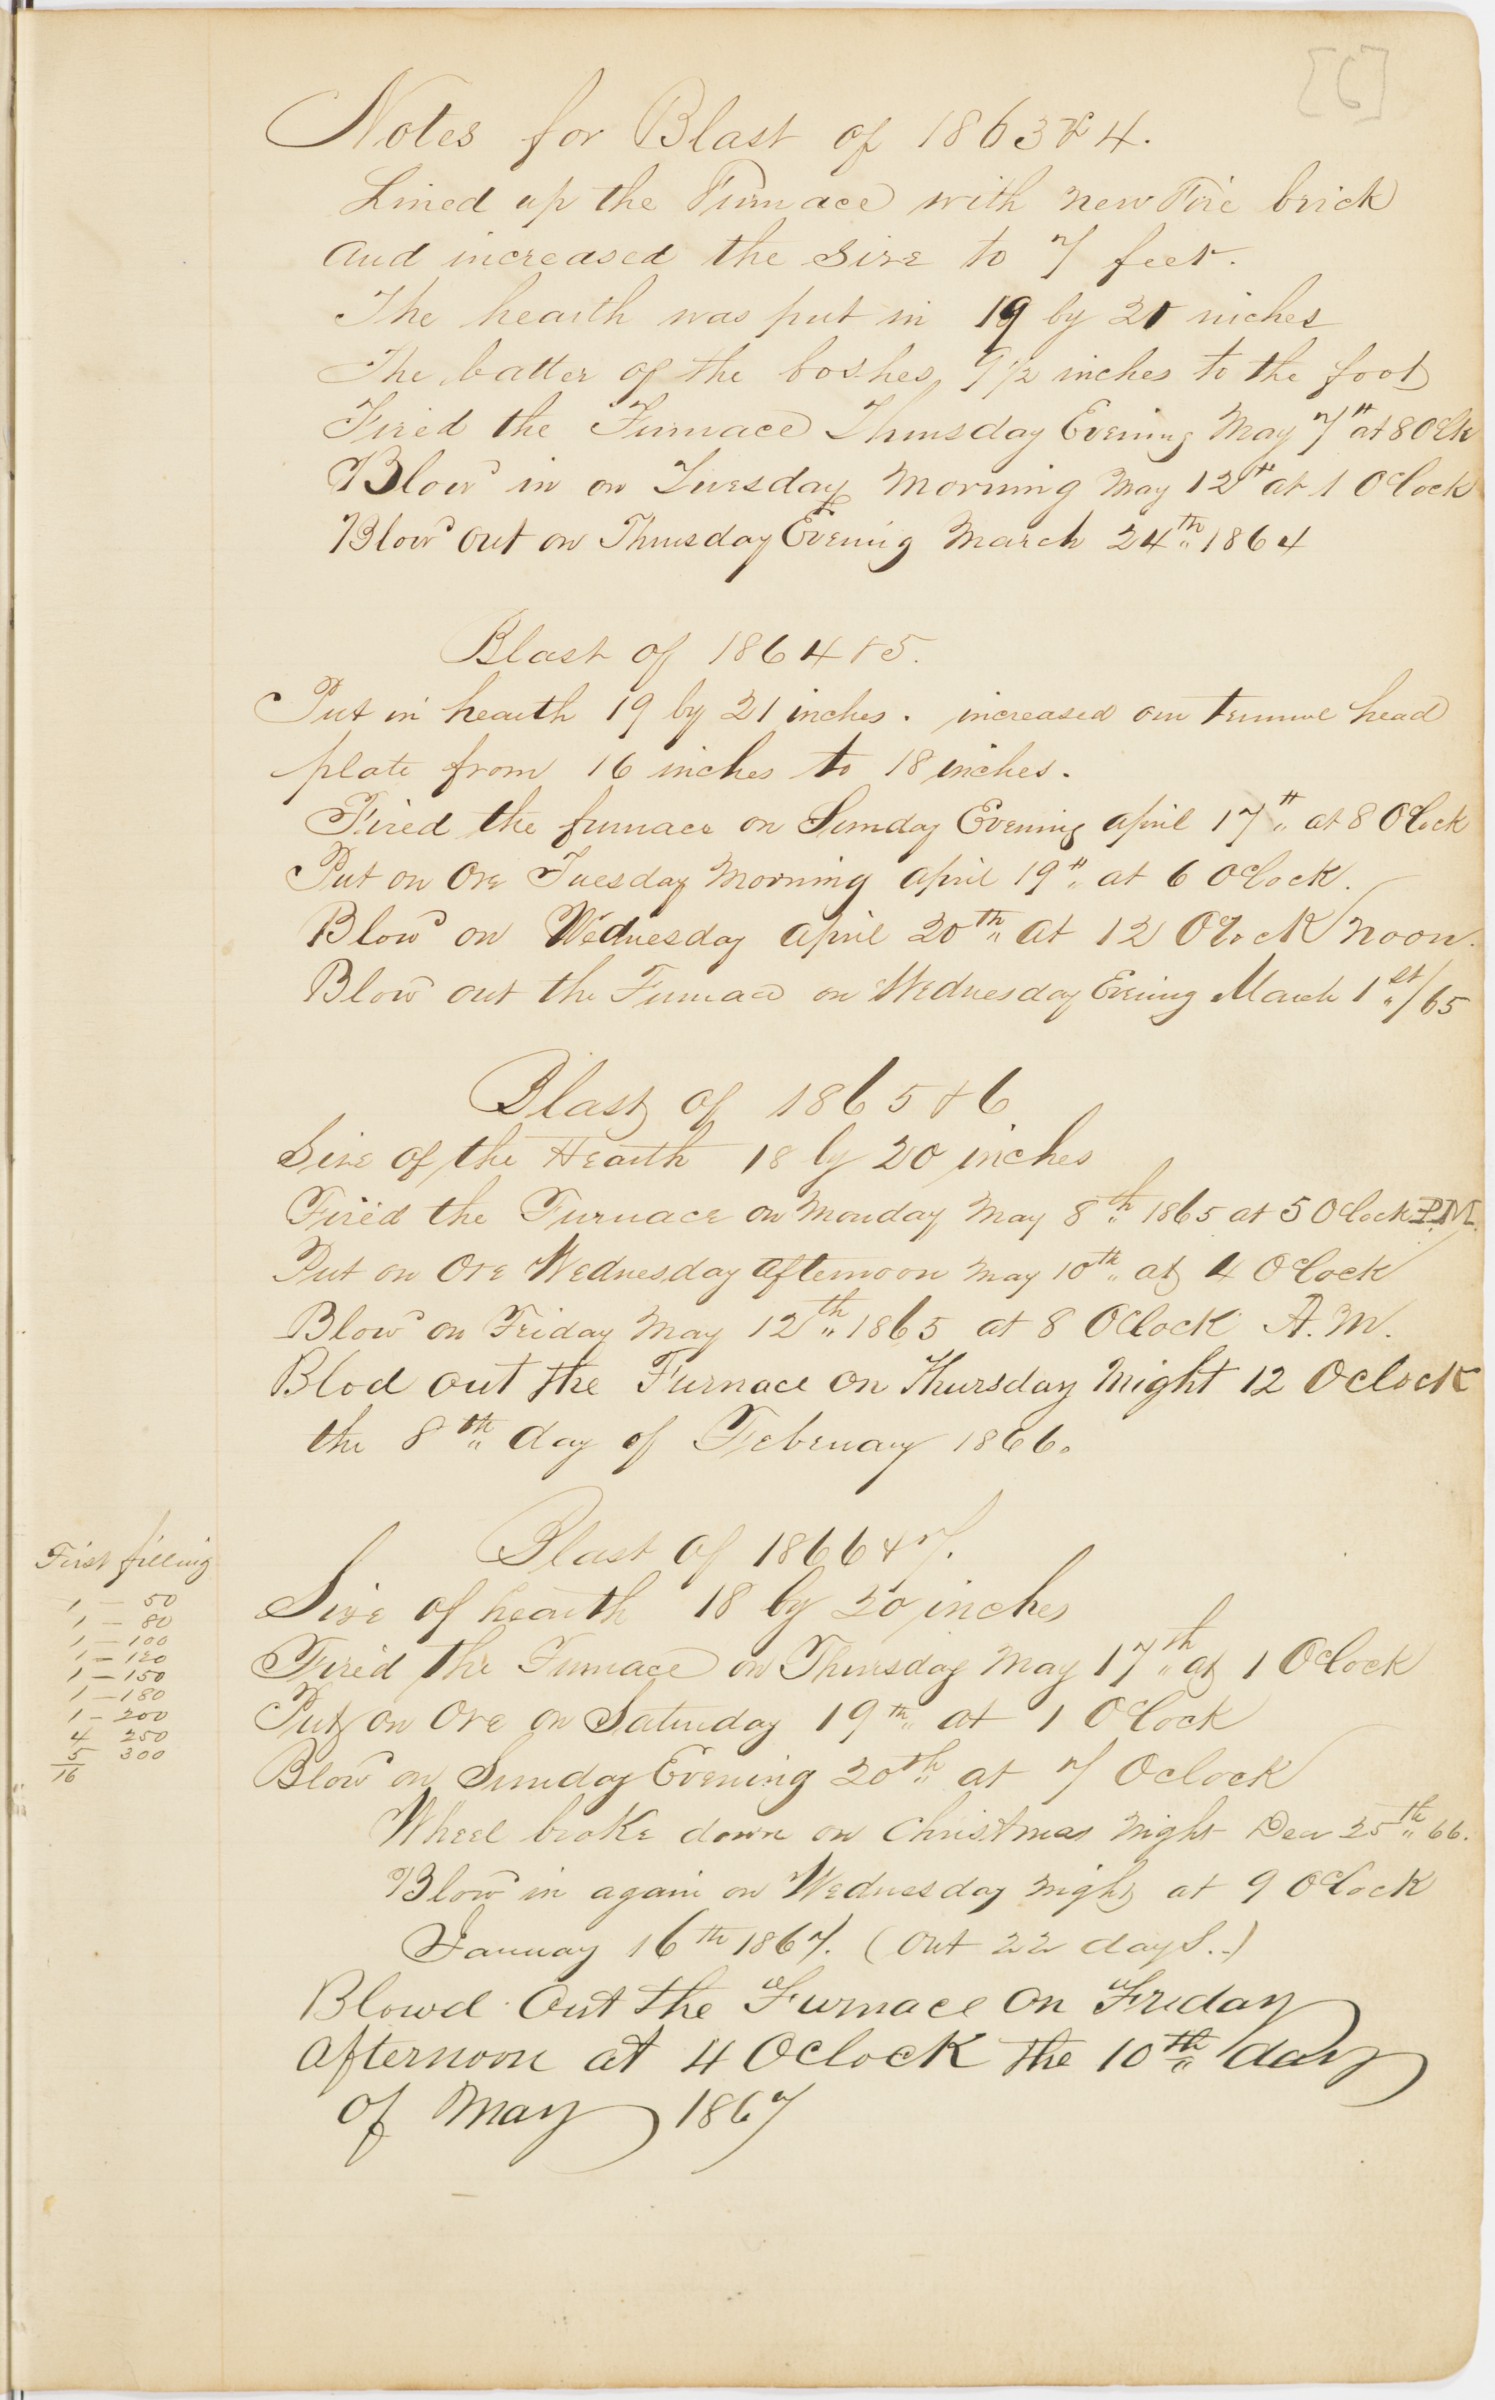 [6]
Notes for Blast of 1863 & 4.
Lined up the Furnace with new Fire brick
and increased the Size to 7 feet.
The hearth was put in 19 by 21 inches
The batter of the boshes 9 1/2 inches to the foot
Fired the Furnace Thursday Evening May 7th at 8 Oclk
Blowd in on Tuesday Morning May 12th at 1 OClock
Blowd out on Thursday Evening March 24th 1864
Blast of 1864 & 5.
Put in hearth 19 by 21 inches. increased our head
plate from 16 inches to 18 inches.
Fired the furnace on Sunday Evening april 17th at 8 OClock
Put on Ore Tuesday Morning april 19th at 6 OClock.
Blowd on Wednesday april 20th at 12 OClock Noon.
Blowd out the Furnace on Wednesday Evening March 1st/65
Blast of 1865 & 6
Size of the Hearth 18 by 20 inches
Fired the Furnace on Monday May 8th 1865 at 5 OClock P.M.
Put on Ore Wednesday afternoon May 10th at 4 OClock
Blowd on Friday May 12th 1865 at 8 OClock A.M.
Blod out the Furnace on Thursday Night 12 Oclock
the 8th day of February 1866.
Blast of 1866 & 7.
Size of hearth 18 by 20 inches
Fired the Furnace on Thursday May 17th at 1 OClock
Put on Ore on Saturday 19th at 1 OClock
Blowd on Sunday Evening 20th at 7 Oclock
Wheel broke down on Christmas Night Dec 25th 66.
Blowd in again on Wednesday Night at 9 OClock
January 16th 1867. (Out 22 days.)
Blowd Out the Furnace On Friday
afternoon at 4 Oclock the 10th day
of May 1867
First filling
1 — 50
1 — 80
1 — 100
1 — 120
1 — 150
1 — 180
1 — 200
4 250
5 300
16